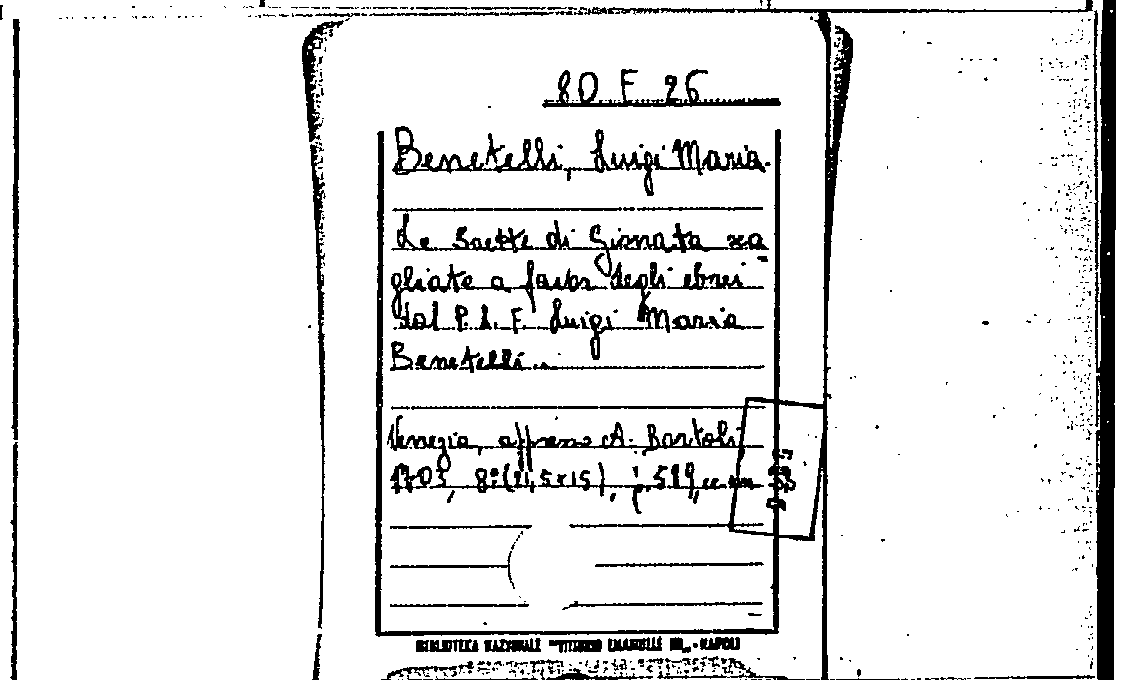 80 F 26
Benetelli, Luigi Maria.
Le Saette di Gionata sca
gliate a favor degli ebrei
dal P. L. F. Luigi Maria
Benetelli...
Venezia, appresso A. Bortoli
1703, 8° (21,5x15), p. 519,
BIBLIOTECA NAZIONALE "VITTORIO EMANUELE III„ - NAPOLI